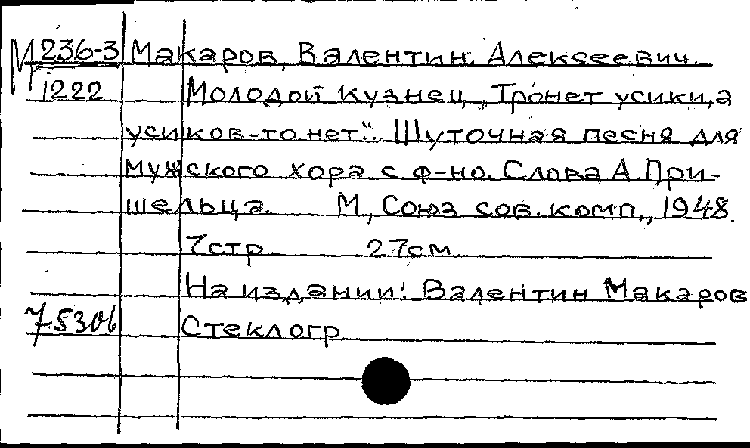 М 236-3 Макаров, Валентин Алексеевич
1222 Молодой кузнец „Тронет усики, а
усиков-то нет“. Шуточная песня для
мужского хора с ф-но. Слова А. При-
шельца. М., Союз сов. комп., 1948.
7 стр 27 см
На издании: Валентин Макаров
Стеклогр